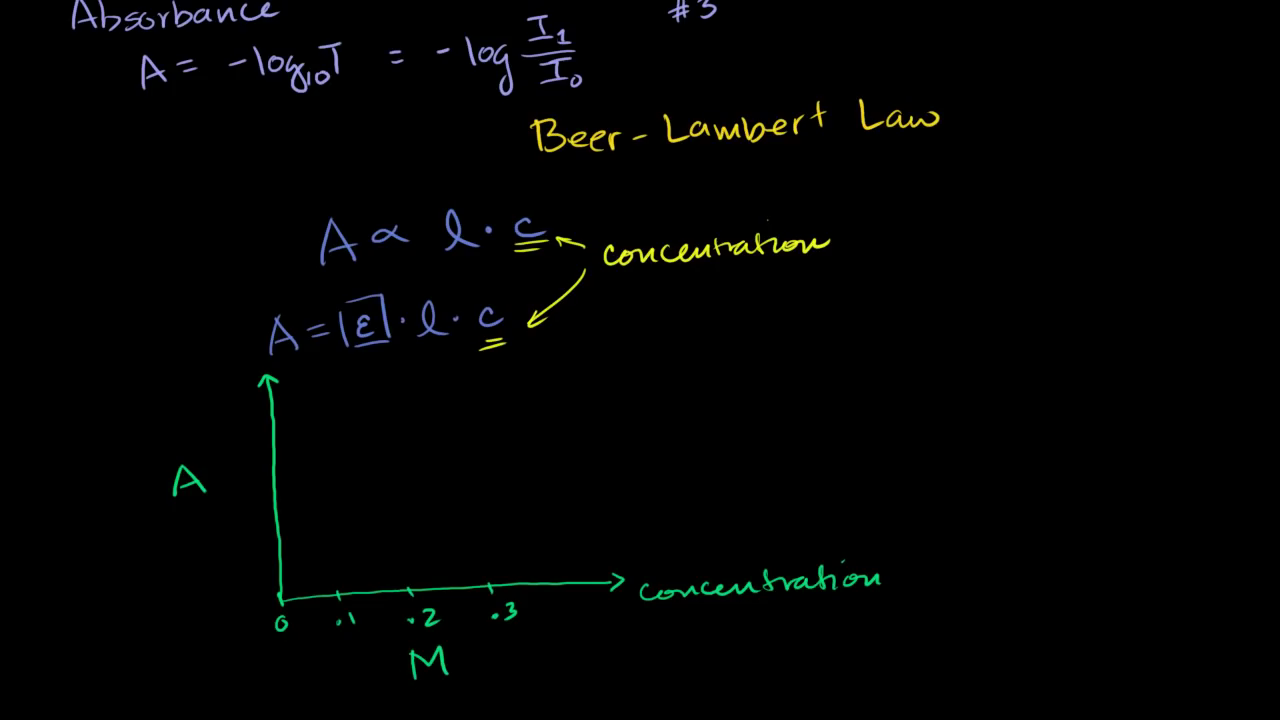 Absorbance #3
A = -log₁₀T = -log I₁/I₀
Beer-Lambert Law
A ∝ l · c concentration
A = |ε| · l · c
A
0 .1 .2 .3 concentration
M